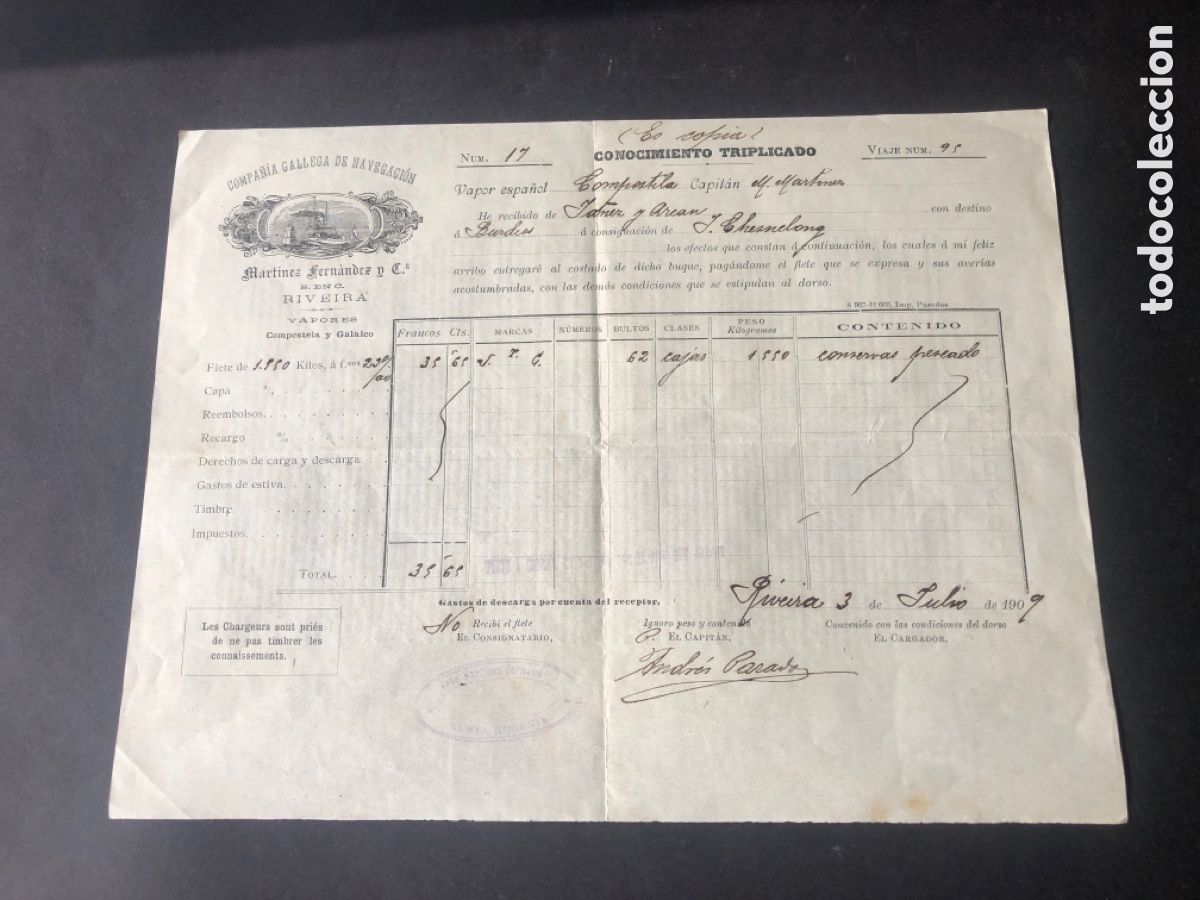 (Es copia)
COMPAÑÍA GALLEGA DE NAVEGACIÓN
Martínez Fernández y C.ª
S. EN C.
RIVEIRA
VAPORES
Compostela y Galaico
NUM. 17
CONOCIMIENTO TRIPLICADO
VIAJE NÚM. 95
Vapor español Compostela Capitán M. Martínez
He recibido de Yáñez y Arcan con destino
á Burdeos á consignación de J. Chesnelong
los efectos que constan á continuación, los cuales á mi feliz
arribo entregaré al costado de dicho buque, pagándome el flete que se expresa y sus averías
acostumbradas, con las demás condiciones que se estipulan al dorso.
S 907-10.000, Imp. Paredes
Francos Cts. MARCAS NÚMEROS BULTOS CLASES PESO Kilogramos CONTENIDO
Flete de 1.550 Kilos, á f.cos 23%00 35 65 62 cajas 1550 conservas pescado
Capa %
Reembolsos.
Recargo %
Derechos de carga y descarga.
Gastos de estiva.
Timbre.
Impuestos.
TOTAL. 35 65
Gastos de descarga por cuenta del receptor.
Riveira 3 de Julio de 1909
Les Chargeurs sont priés
de ne pas timbrer les
connaissements.
No Recibí el flete
EL CONSIGNATARIO,
Ignoro peso y contenido
P. EL CAPITÁN,
Andrés Parado
Contenido con las condiciones del dorso
EL CARGADOR,
todocoleccion